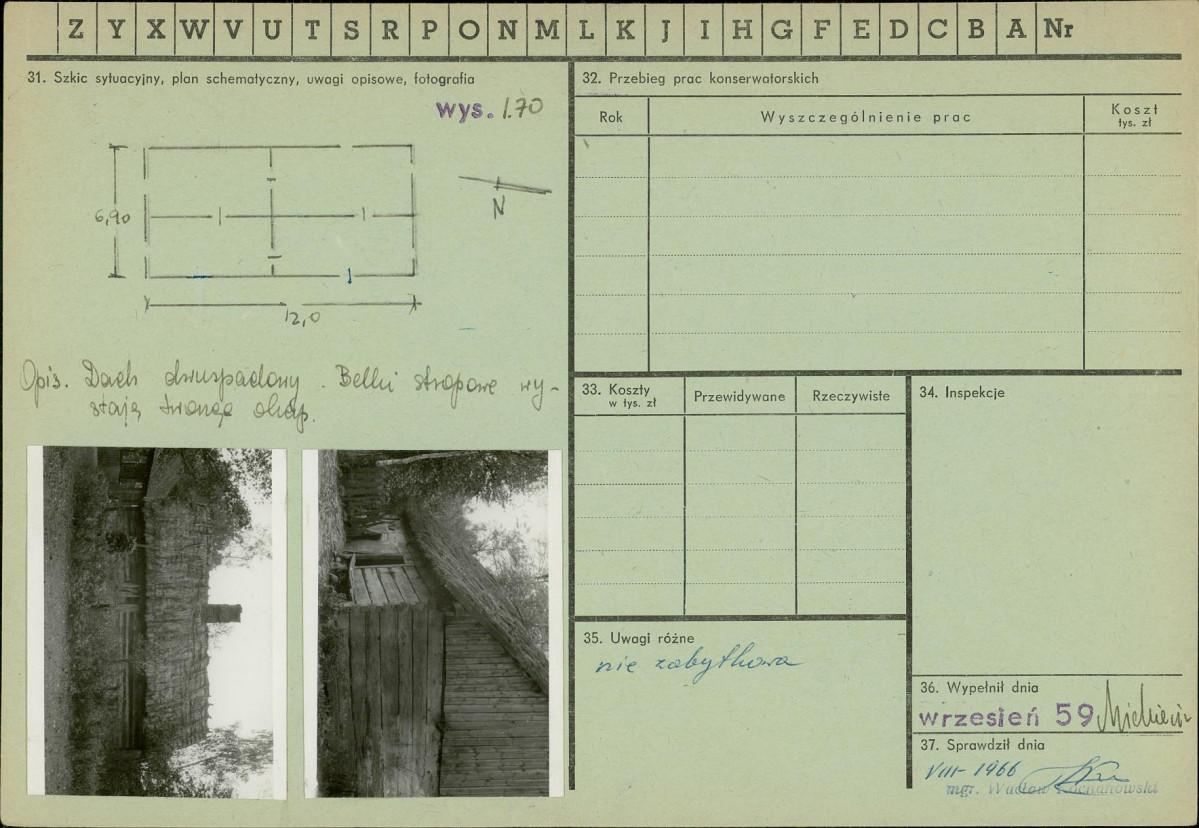 Z Y X W V U T S R P O N M L K J I H G F E D C B A Nr
31. Szkic sytuacyjny, plan schematyczny, uwagi opisowe, fotografia
wys. 1.70
6,90
N
12,0
Opis. Dach dwuspadowy. Belki stropowe wy-
stają tworząc okap.
32. Przebieg prac konserwatorskich
Rok
Wyszczególnienie prac
Koszt
tys. zł
33. Koszty
w tys. zł
Przewidywane
Rzeczywiste
34. Inspekcje
35. Uwagi różne
nie zabytkowa
36. Wypełnił dnia
wrzesień 59
37. Sprawdził dnia
VIII-1966
mgr. Wacław Kochanowski